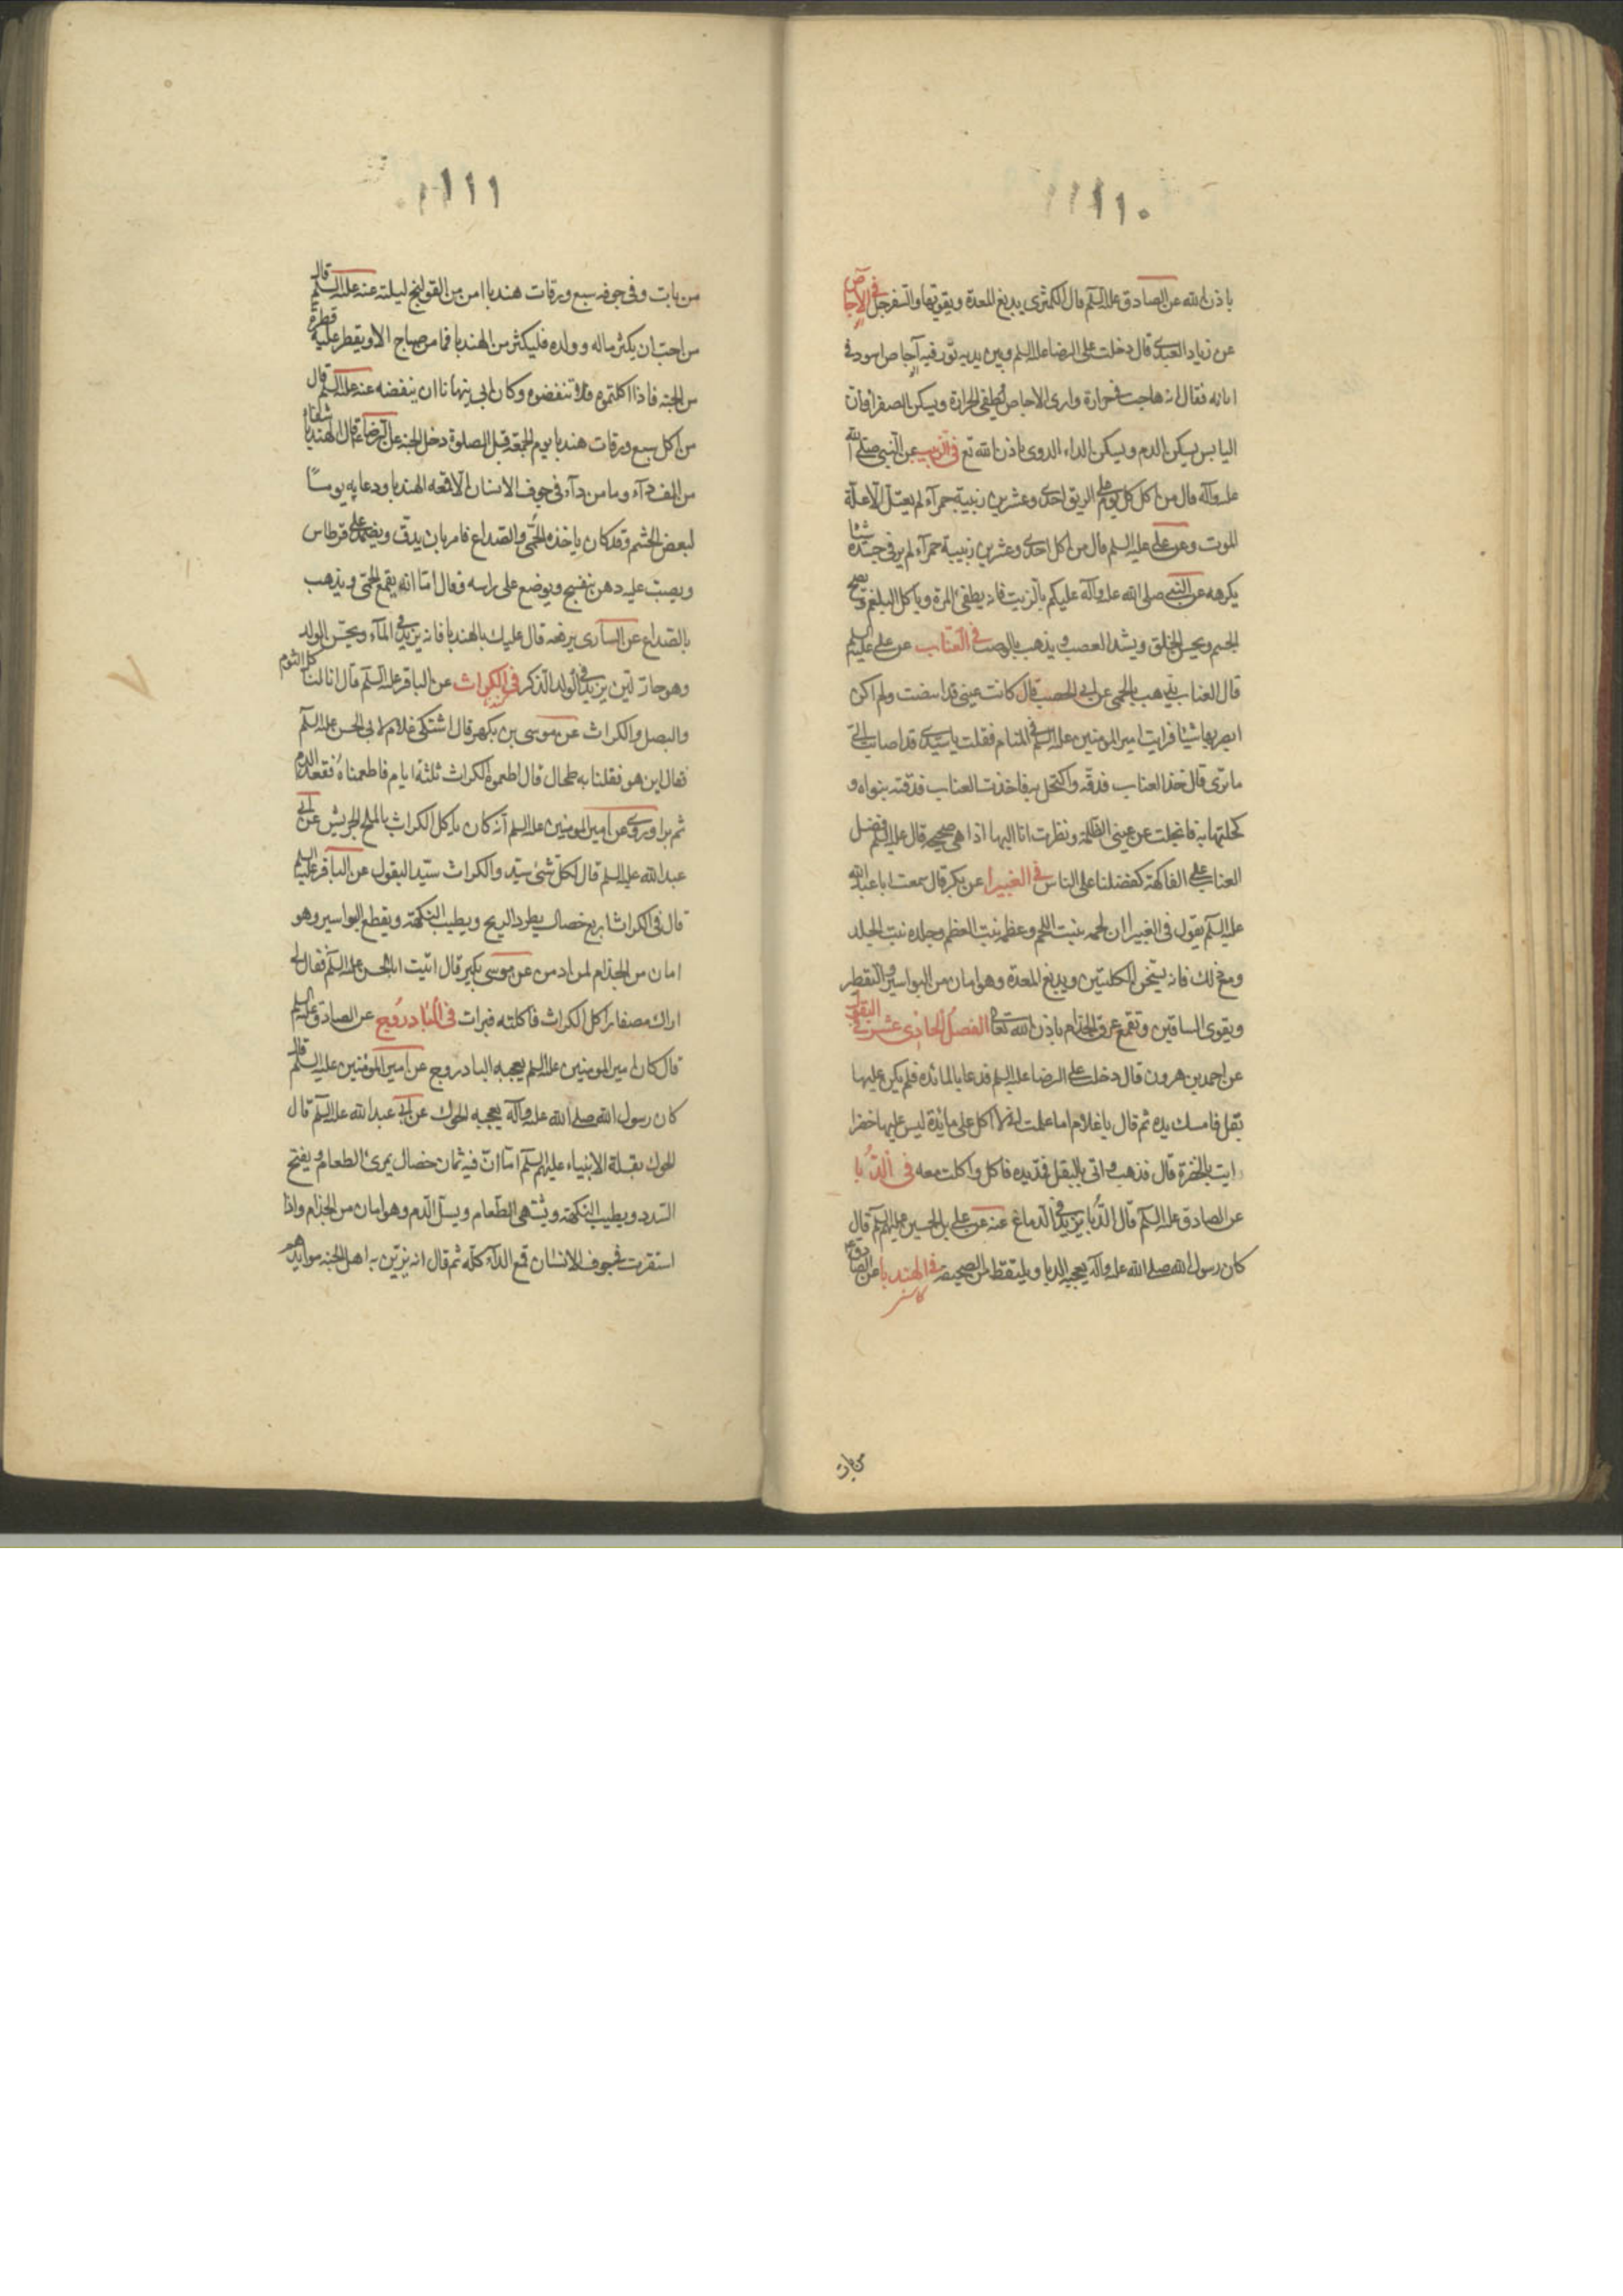 ١١٠
باذن الله عن الصادق علیه السلم قال الکمثری یدبغ المعدة ویقویها والسفرجل فی الاجاص
عن زیاد العبدی قال دخلت علی الرضا علیه السلم وبین یدیه تور فیه آجاص اسود فی
ابانه فقال انه هاجت فی حرارة واری الاجاص یطفی الحرارة ویسکن الصفرا وان
الیابس یسکن الدم ویسکن الداء الدوی باذن الله تع فی الزبیب عن النبی صلی الله
علیه وآله قال من اکل کل یوم علی الریق احدی وعشرین زبیبة حمرآء لم یعتل الا علة
الموت وعن علی علیه السلم قال من اکل احدی وعشرین زبیبة حمرآء لم یر فی جسده شیئا
یکرهه عن النبی صلی الله علیه وآله علیکم بالزبیب فانه یطفئ المرة ویاکل البلغم ویصح
الجسم ویحسن الخلق ویشد العصب ویذهب بالوصب فی العناب عن علی علیه السلم
قال العناب یذهب بالحمی عن ابی الحصیب قال کانت عینی قد ابیضت ولم اکن
ابصر بها شیئا فرایت امیر المومنین علیه السلم فی المنام فقلت یا سیدی قد اصابت الی
ما تری قال خذ العناب فدقه واکتحل به فاخذت العناب فدققته بنواه و
کحلتها به فانجلت عن عینی الظلمة ونظرت انا الیها اذا هی صحیحه قال علیه السلم فضل
العناب علی الفاکهة کفضلنا علی الناس فی الغبیرا عن بکر قال سمعت ابا عبد الله
علیه السلم یقول فی الغبیرا ان لحمه ینبت اللحم وعظمه ینبت العظم وجلده ینبت الجلد
ومع ذلک فانه یسخن الکلیتین ویدبغ المعدة وهو امان من البواسیر والتقطیر
ویقوی الساقین وتقمع عرق الجذام باذن الله تعالی الفصل الحادی عشر فی البقول
عن احمد بن هرون قال دخلت علی الرضا علیه السلم فدعا بالمائده فلم یکن علیها
بقل فامسک یده ثم قال یا غلام اما علمت انی لا اکل علی مائدة لیس علیها خضرا
ایت بالخضرة قال فذهب واتی بالبقل فمد یده فاکل واکلت معه فی الدُّبا
عن الصادق علیه السلم قال الدُّبا یزید فی الدماغ عنه عن علی بن الحسین علیهم السلم قال
کان رسول الله صلی الله علیه وآله یعجبه الدبا ویلتقطه من الصحیفة فی الهندبا عن الصادق ع
کاسنی
من بات
١١١
من بات وفی جوفه سبع ورقات هندبا امن من القولنج لیلته عنه علیه السلم قال
من احب ان یکثر ماله وولده فلیکثر من الهندبا فما من صباح الا ویقطر علیه قطرة
من الجنه فاذا اکلتموه فلا تنفضوه وکان ابی ینهانا ان ینفضه عنه علیه السلم قال
من اکل سبع ورقات هندبا یوم الجمعة قبل الصلوة دخل الجنه عن الرضا ع قال الهندبا شفاء
من الف دآء وما من دآء فی جوف الانسان الا قمعه الهندبا ودعا به یوما
لبعض الحشم وقد کان یاخذه الحُمی والصداع فامر بان یدق ویضمد علی قرطاس
ویصب علیه دهن بنفسج ویوضع علی راسه وقال اما انه یقمع الحمی ویذهب
بالصداع عن الساری یرفعه قال علیک بالهندبا فانه یزید فی المآء ویحسن الولد
وهو حار لین یزید فی الولد الذکر فی الکراث عن الباقر علیه السلم قال انا لنا کل الثوم
والبصل والکراث عن موسی بن بکر قال اشتکی غلام لابی الحسن علیه السلم
فقال این هو فقلنا به طحال قال اطعموه الکراث ثلثة ایام فاطعمناه فقعد الدم
ثم برا وروی عن امیر المومنین علیه السلم انه کان یاکل الکراث بالملح الجریش عن ابی
عبد الله علیه السلم قال لکل شئ سید والکراث سید البقول عن الباقر علیه السلم
قال فی الکراث اربع خصال یطرد الریح ویطیب النکهة ویقطع البواسیر وهو
امان من الجذام لمن ادمن عن موسی بکیر قال اتیت ابا الحسن علیه السلم فقال لی
اراک مصفارا کل الکراث فاکلته فبرات فی البادرُوج عن الصادق علیه السلم
قال کان امیر المومنین علیه السلم یعجبه البادروج عن امیر المؤمنین علیه السلم قال
کان رسول الله صلی الله علیه وآله یعجبه الحوک عن ابی عبد الله علیه السلم قال
الحوک بقلة الانبیاء علیهم السلم اما ان فیه ثمان خصال یمرئ الطعام ویفتح
السدد ویطیب النکهة ویشتهی الطعام ویسل الدم وهو امان من الجذام واذا
استقرت فی جوف الانسان قمع الدآء کله ثم قال انه یزین به اهل الجنة موایدهم